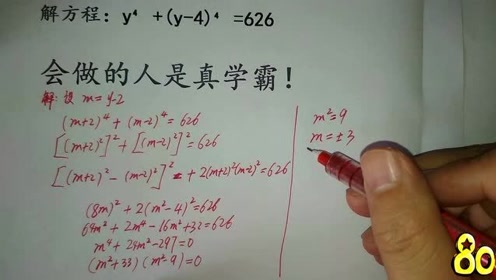 解方程：y⁴ +(y-4)⁴ =626
会做的人是真学霸！
解：设 m=y-2
(m+2)⁴+(m-2)⁴=626
[(m+2)²]²+[(m-2)²]²=626
[(m+2)²-(m-2)²]²+2(m+2)²(m-2)²=626
(8m)²+2(m²-4)²=626
64m²+2m⁴-16m²+32=626
m⁴+24m²-297=0
(m²+33)(m²-9)=0
m²=9
m=±3
80